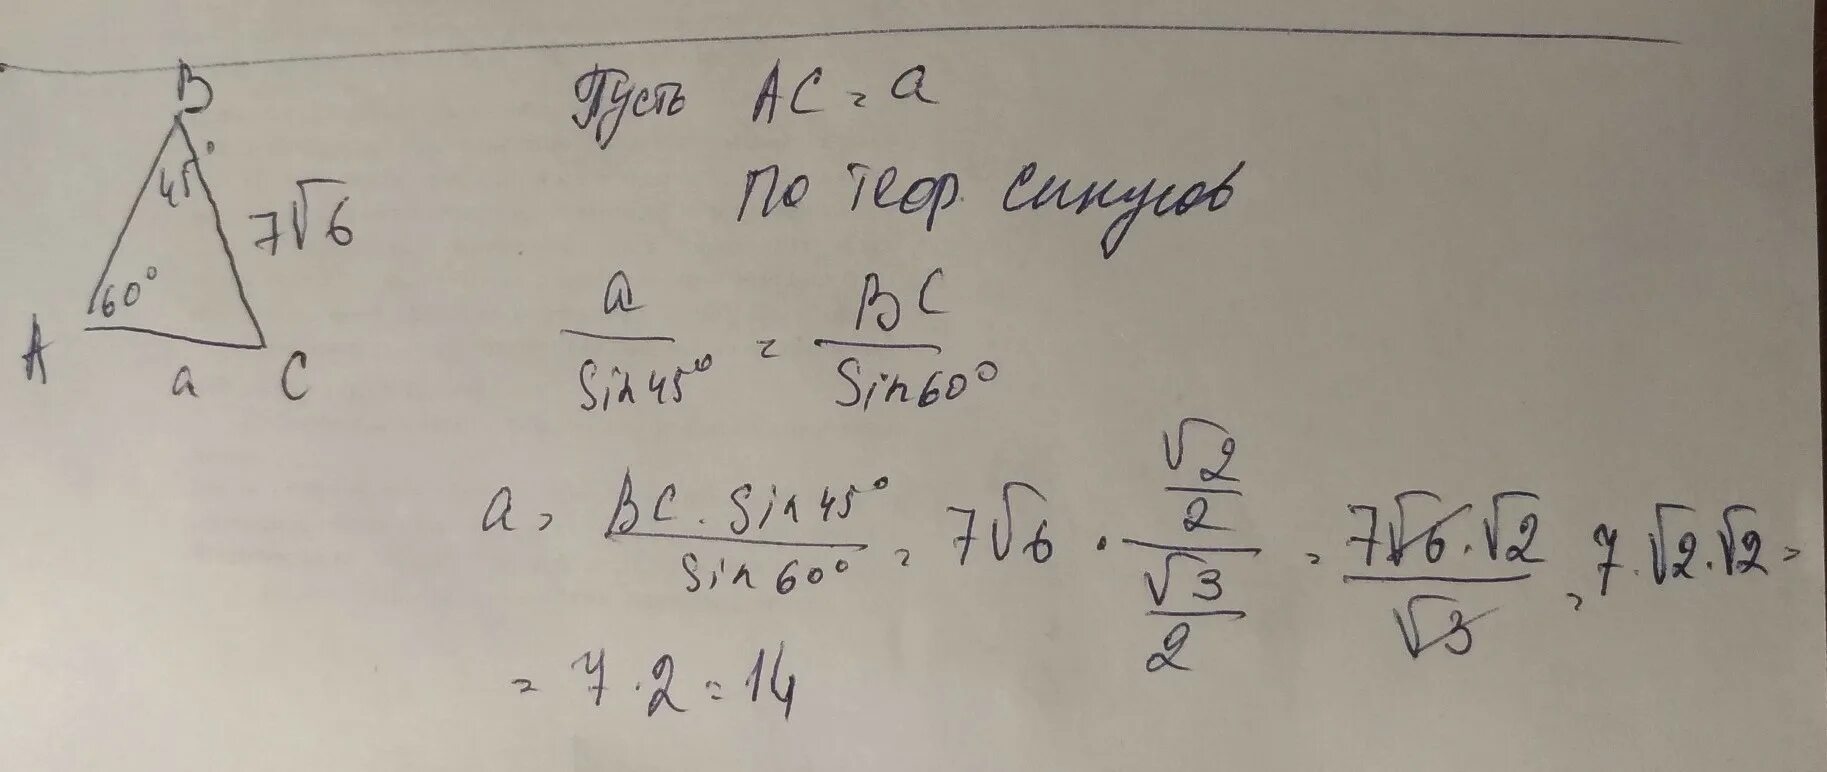 B
45°
7√6
60°
A
a
C
Пусть AC = a
По теор. синусов
a / Sin45° = BC / Sin60°
a = BC · Sin45° / Sin60° = 7√6 · (√2/2) / (√3/2) = 7√6 · √2 / √3 = 7 · √2 · √2 =
= 7 · 2 = 14